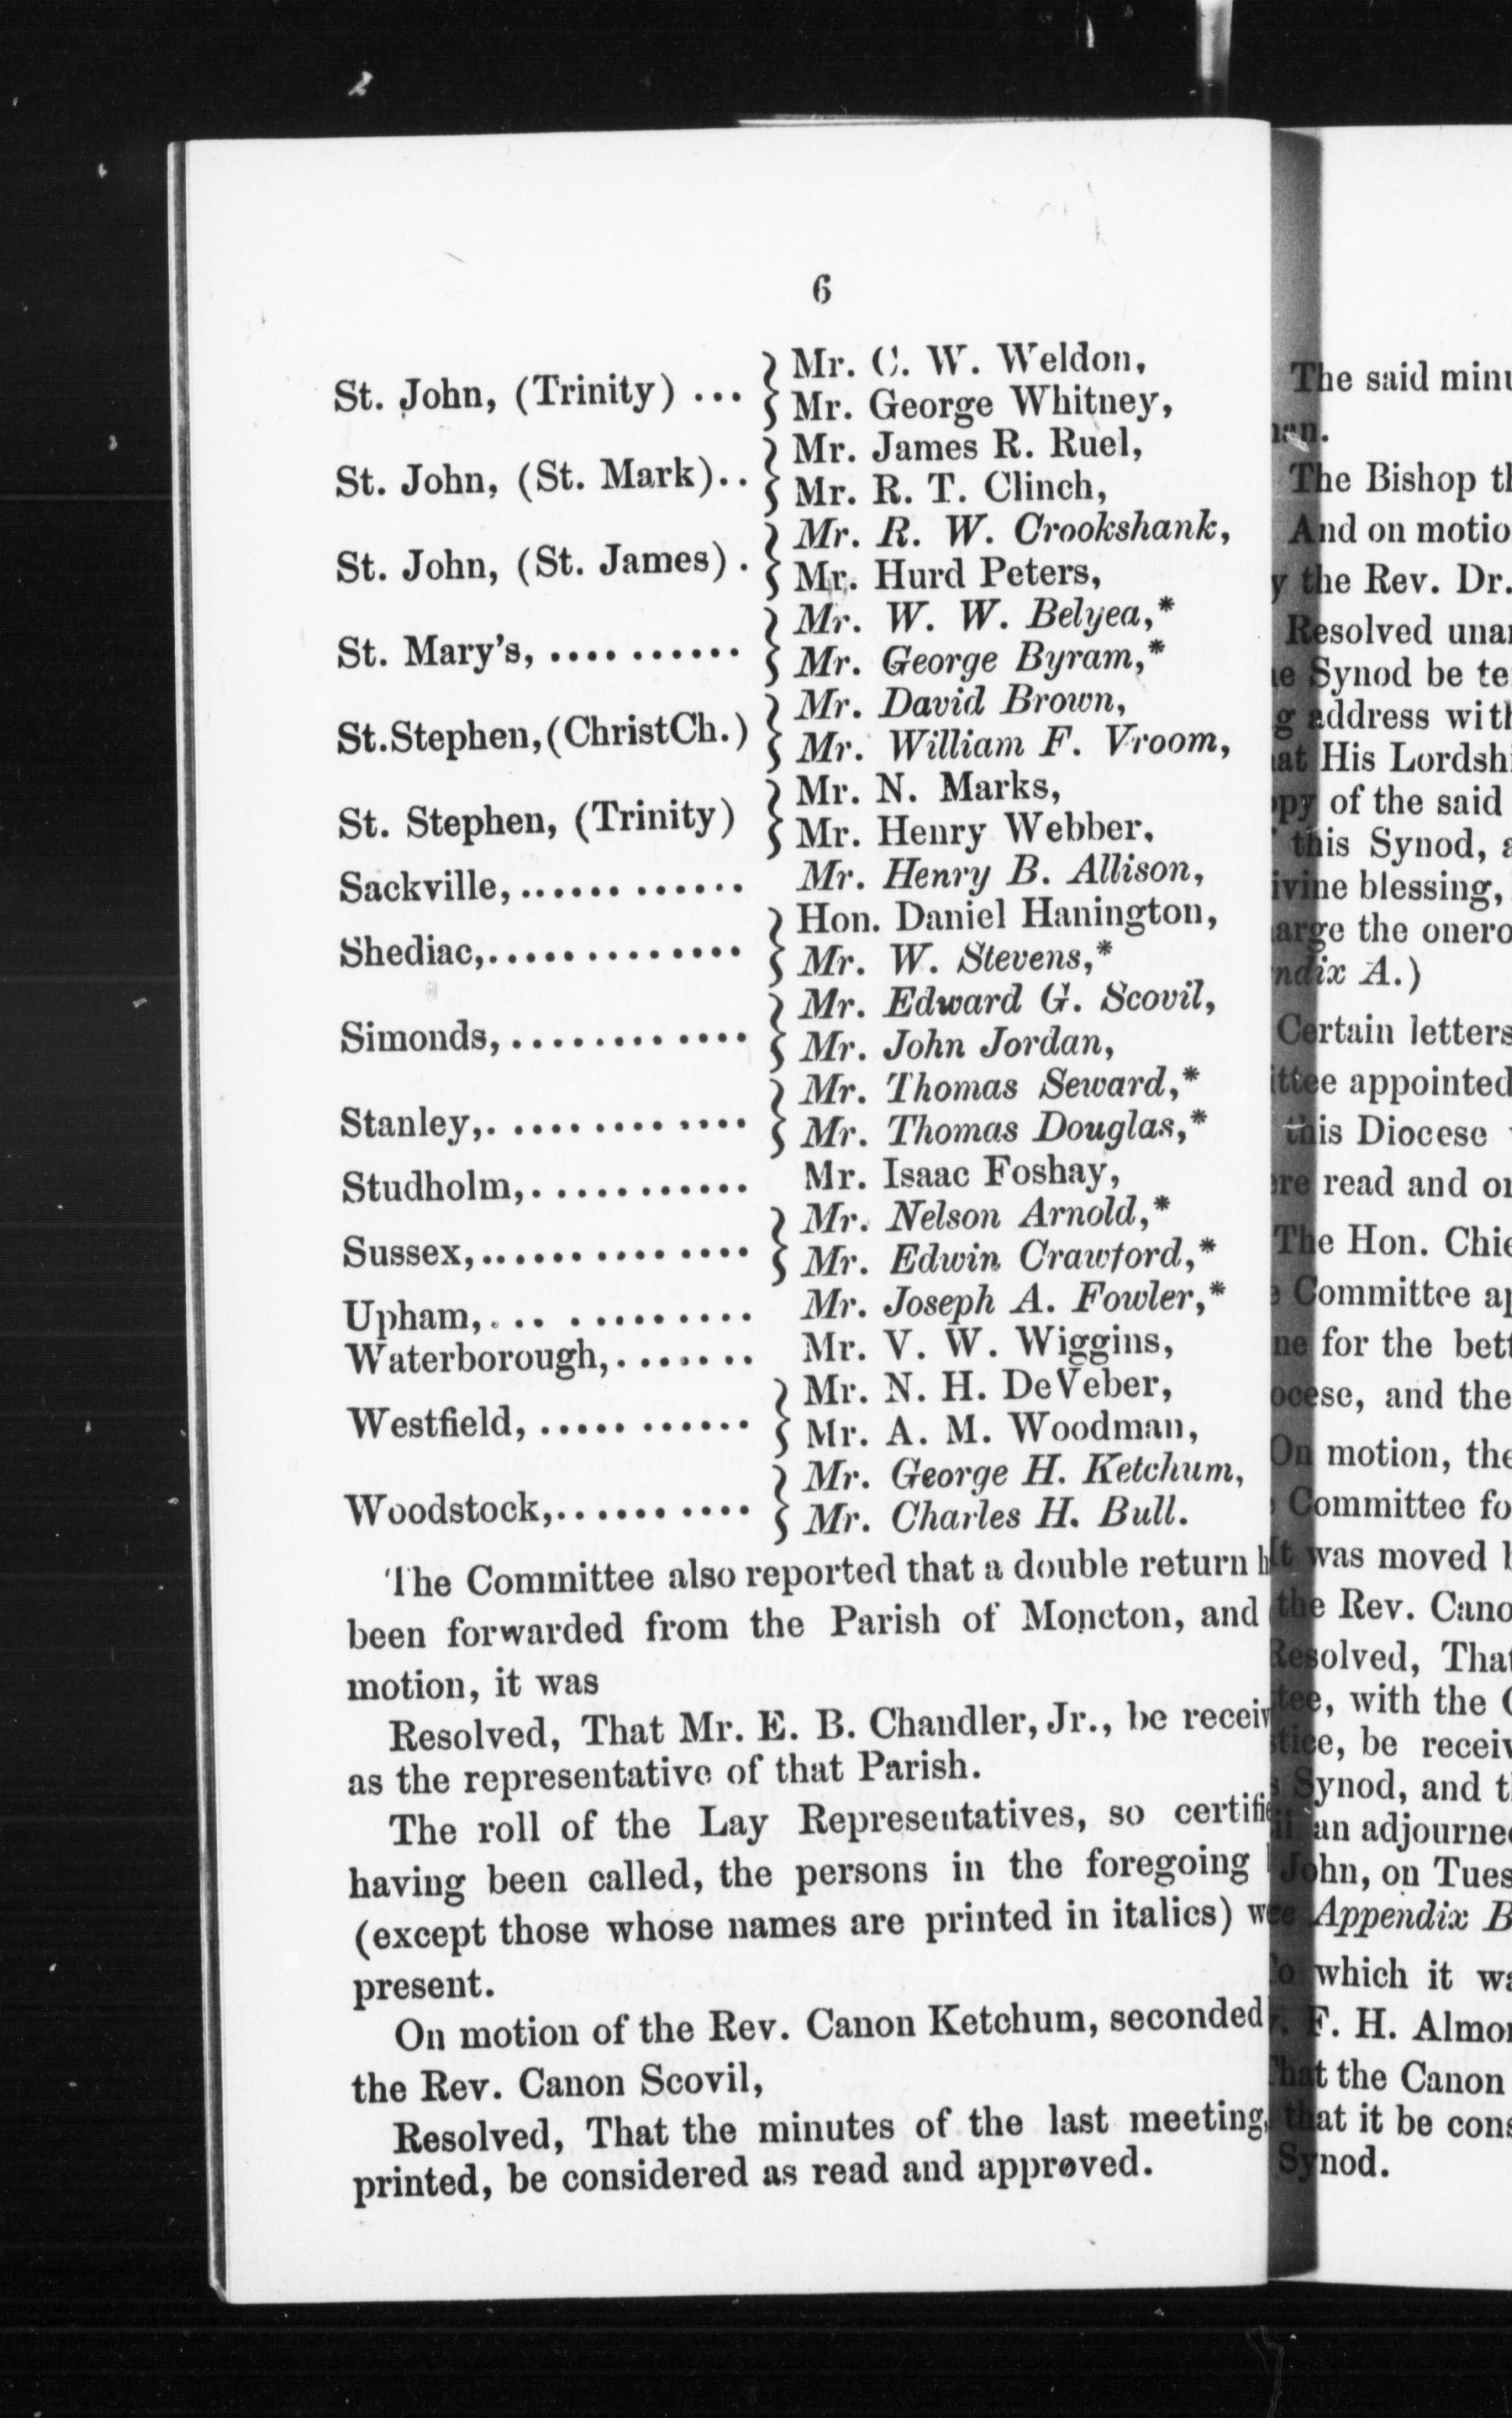 6
St. John, (Trinity) ... } Mr. C. W. Weldon,
Mr. George Whitney,
St. John, (St. Mark).. } Mr. James R. Ruel,
Mr. R. T. Clinch,
St. John, (St. James) . } Mr. R. W. Crookshank,
Mr. Hurd Peters,
St. Mary's, ........... } Mr. W. W. Belyea,*
Mr. George Byram,*
St.Stephen,(ChristCh.) } Mr. David Brown,
Mr. William F. Vroom,
St. Stephen, (Trinity) } Mr. N. Marks,
Mr. Henry Webber,
Sackville,............ Mr. Henry B. Allison,
Shediac,.............. } Hon. Daniel Hanington,
Mr. W. Stevens,*
Simonds,............. } Mr. Edward G. Scovil,
Mr. John Jordan,
Stanley,.............. } Mr. Thomas Seward,*
Mr. Thomas Douglas,*
Studholm,............ Mr. Isaac Foshay,
Sussex,............... } Mr. Nelson Arnold,*
Mr. Edwin Crawford,*
Upham,............. Mr. Joseph A. Fowler,*
Waterborough,....... Mr. V. W. Wiggins,
Westfield, ........... } Mr. N. H. DeVeber,
Mr. A. M. Woodman,
Woodstock,........... } Mr. George H. Ketchum,
Mr. Charles H. Bull.
The Committee also reported that a double return h
been forwarded from the Parish of Moncton, and
motion, it was
Resolved, That Mr. E. B. Chandler, Jr., be receiv
as the representative of that Parish.
The roll of the Lay Representatives, so certifie
having been called, the persons in the foregoing
(except those whose names are printed in italics) we
present.
On motion of the Rev. Canon Ketchum, seconded
the Rev. Canon Scovil,
Resolved, That the minutes of the last meeting,
printed, be considered as read and approved.
The said minu
an.
The Bishop th
And on motio
y the Rev. Dr.
Resolved unan
e Synod be te
g address with
at His Lordshi
opy of the said
this Synod, a
ivine blessing,
arge the onero
ndix A.)
Certain letters
ittee appointed
this Diocese
ere read and or
The Hon. Chie
Committee ap
ne for the bett
ocese, and the
On motion, the
Committee fo
It was moved b
the Rev. Cano
Resolved, That
tee, with the C
stice, be receiv
s Synod, and t
il an adjourned
John, on Tues
e Appendix B
To which it wa
. F. H. Almon
That the Canon
that it be cons
Synod.